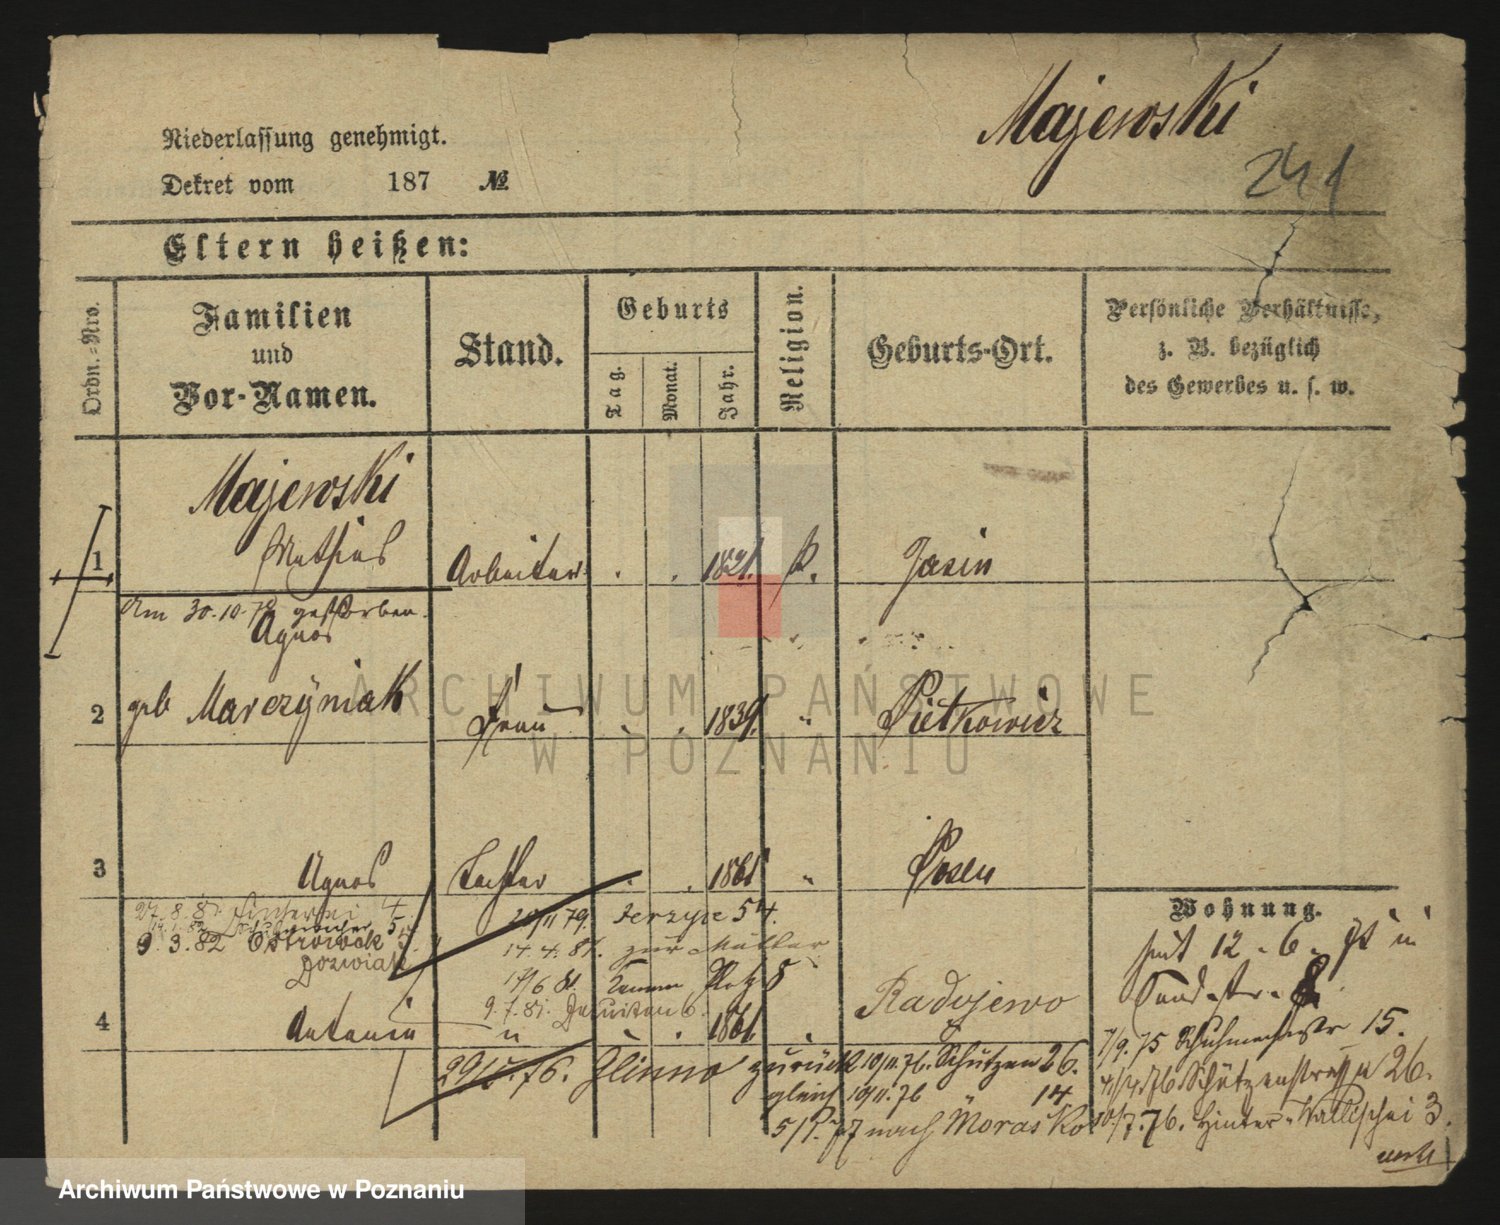 Majewski
241
Niederlassung genehmigt.
Dekret vom 187 №
Eltern heißen:
Ordn.-Nro.
Familien
und
Vor-Namen.
Stand.
Geburts
Tag.
Monat.
Jahr.
Religion.
Geburts-Ort.
Persönliche Verhältnisse,
z. B. bezüglich
des Gewerbes u. s. w.
Majewski
1 Mathias Arbeiter . . 1821. k. Jasin
Am 30.10.78 gestorben.
Agnes
2 geb Marczyniak Frau . . 1839. " Pietkowicz
ARCHIWUM PAŃSTWOWE
W POZNANIU
3 Agnes Tochter . . 1861 " Posen
Wohnung.
27.8.81 Fischerei 4
20/11 79. Jerzyce 54.
9.3.82 Ostrowek
14.4.81. zur Mutter
seit 12-6-
17/6 81. Platz 8
Sandstr. 8.
9.7.81. Jesuiten 6.
4 Antonia " . . 1861 . Radojewo
7/9.75 Schuhmacherstr 15.
76. Glinno zurück 10/11.76. Schützen 26.
76 Schützenstrasse 26.
gleich 10/11.76 14
77 nach Morasko
7.76. Hinter-Wallischei 3.
Archiwum Państwowe w Poznaniu